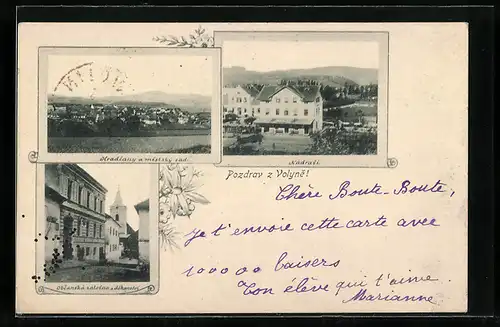 Hradčany a městský sad.
Nádraží.
Pozdrav z Volyně!
Občanská záložna a děkanství
Chère Boute-Boute,
Je t'envoie cette carte avec
100000 baisers
Ton élève qui t'aime.
Marianne